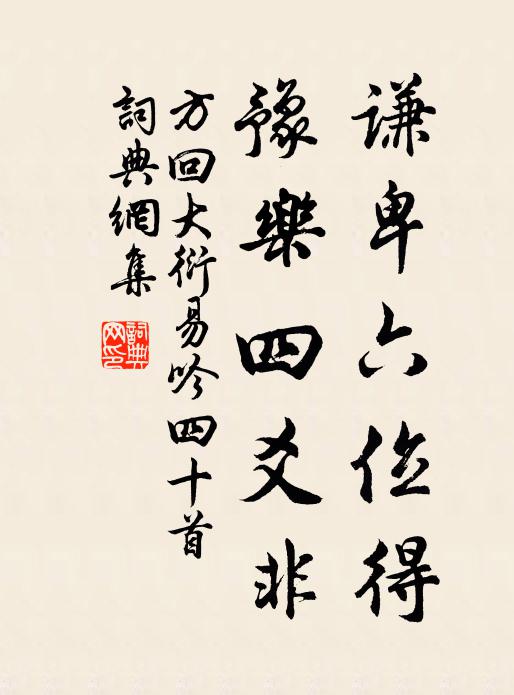 謙卑六位得
豫樂四爻非
方回大衍易吟四十首
詞典網集
詞典
网印